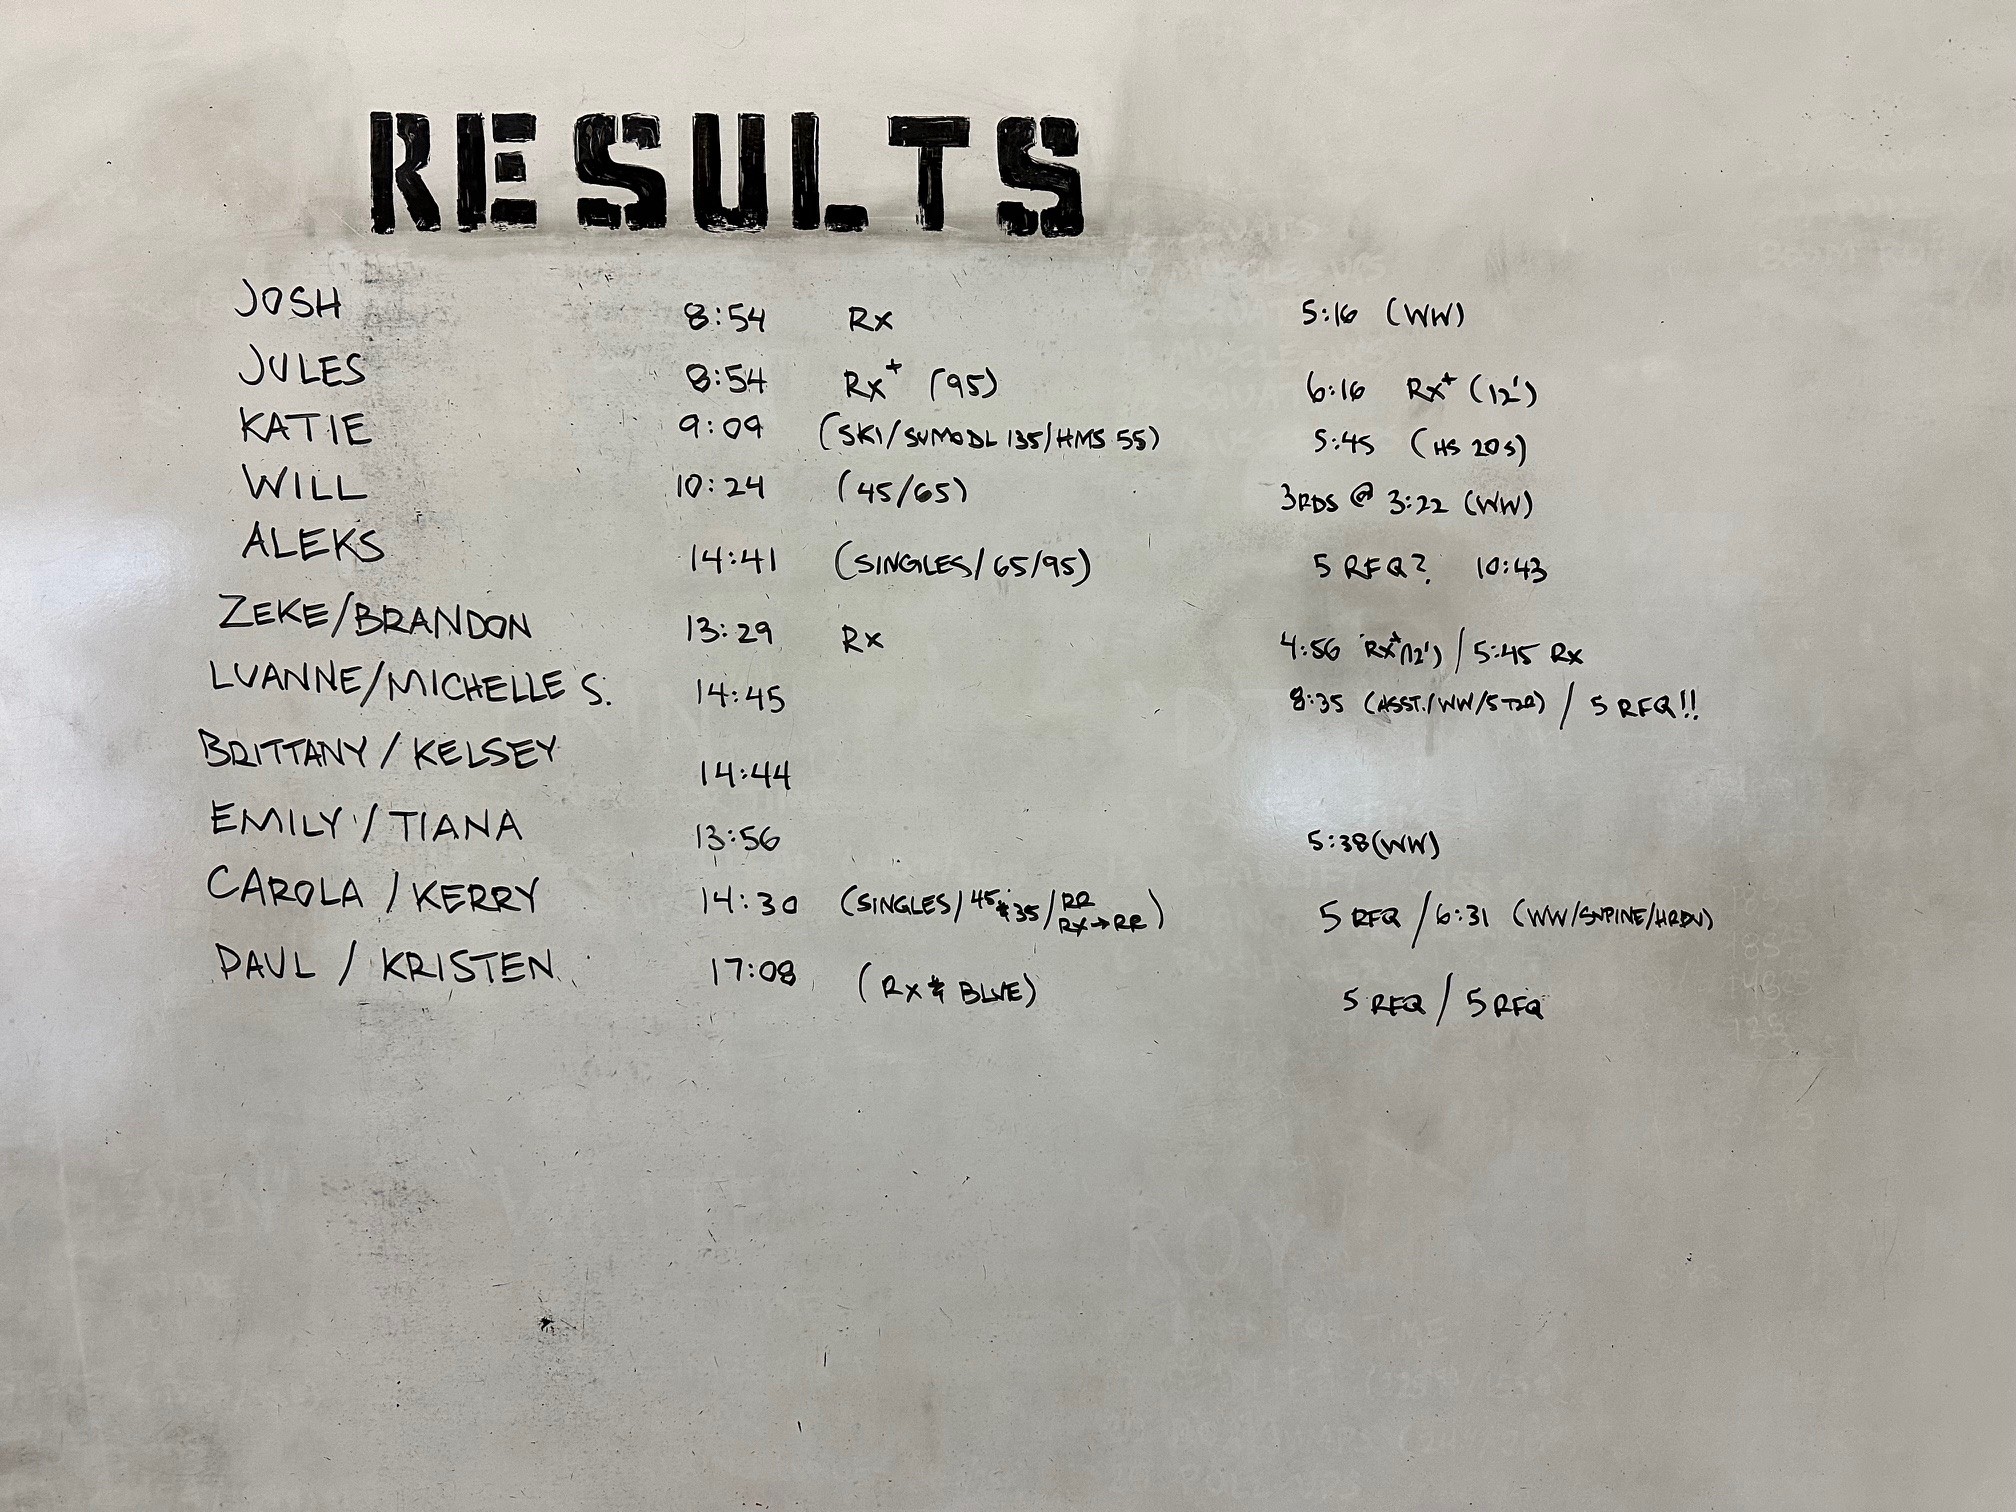 RESULTS
JOSH 8:54 Rx 5:16 (WW)
JULES 8:54 Rx+ (95) 6:16 Rx+ (12')
KATIE 9:09 (SKI/SUMODL 135/HMS 55) 5:45 (HS 20s)
WILL 10:24 (45/65) 3RDS @ 3:22 (WW)
ALEKS 14:41 (SINGLES/65/95) 5 RFQ? 10:43
ZEKE/BRANDON 13:29 Rx 4:56 Rx+(12') / 5:45 Rx
LUANNE/MICHELLE S. 14:45 8:35 (ASST./WW/5 T2R) / 5 RFQ!!
BRITTANY / KELSEY 14:44
EMILY / TIANA 13:56 5:38 (WW)
CAROLA / KERRY 14:30 (SINGLES/45 & 35/RR Rx→RR) 5 RFQ / 6:31 (WW/SUPINE/HRPU)
PAUL / KRISTEN 17:08 (Rx & BLUE) 5 RFQ / 5 RFQ